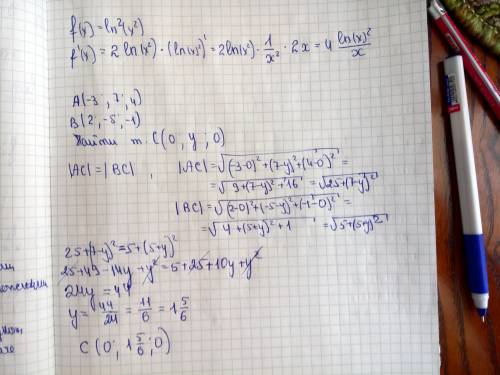 f(x) = ln²(x²)
f'(x) = 2 ln(x²) · (ln(x²))' = 2ln(x²) · 1/x² · 2x = 4 ln(x)²/x
A(-3; 7; 4)
B(2; -5; -1)
Найти т. C(0; y; 0)
|AC| = |BC|, |AC| = √((-3-0)²+(7-y)²+(4-0)²) =
= √(9+(7-y)²+16) = √(25+(7-y)²)
|BC| = √((2-0)²+(-5-y)²+(-1-0)²) =
= √(4+(5+y)²+1) = √(5+(5+y)²)
25+(7-y)² = 5+(5+y)²
25+49-14y+y² = 5+25+10y+y²
24y = 44
y = 44/24 = 11/6 = 1 5/6
C(0; 1 5/6; 0)